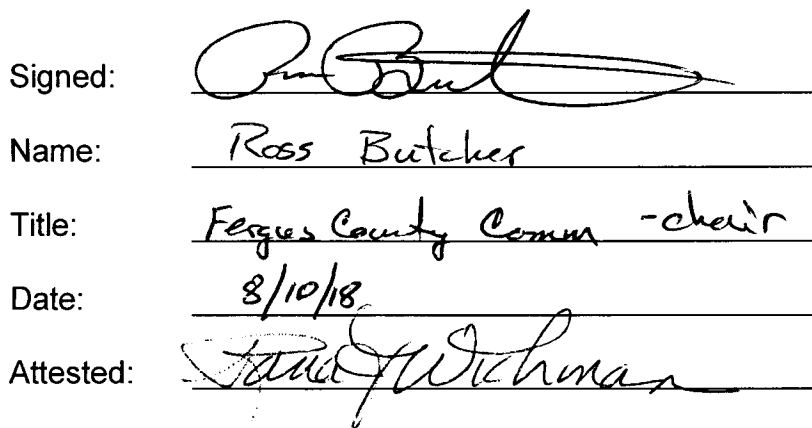 Signed:
Name: Ross Butcher
Title: Fergus County Comm -chair
Date: 8/10/18
Attested: Wichman